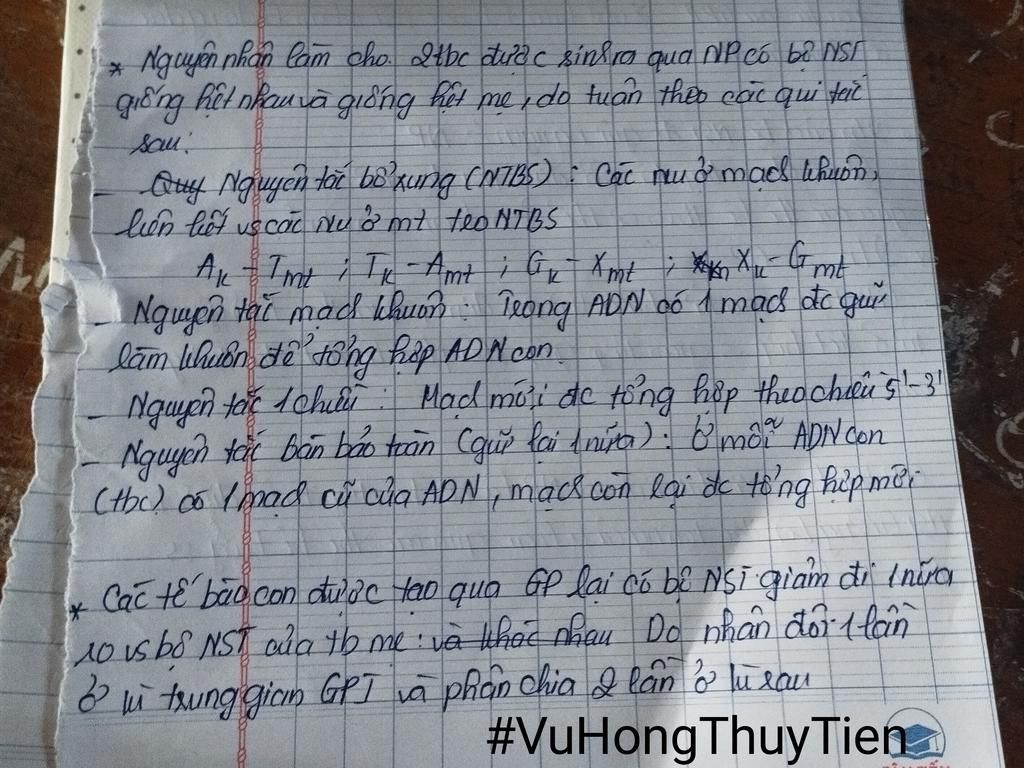 * Nguyên nhân làm cho 2tbc được sinh ra qua NP có bộ NST
giống hệt nhau và giống hệt mẹ, do tuân theo các qui tắc
sau:
- Quy Nguyên tắc bổ xung (NTBS): Các nu ở mạch khuôn,
liên kết vs các nu ở mt teo NTBS
Ak - Tmt ; Tk - Amt ; Gk - Xmt ; Xk - Gmt
- Nguyên tắc mạch khuôn: Trong ADN có 1 mạch đc giữ
làm khuôn để tổng hợp ADN con.
- Nguyên tắc 1 chiều: Mạch mới đc tổng hợp theo chiều 5'-3'
- Nguyên tắc bán bảo toàn (giữ lại 1 nửa): ở mỗi ADN con
(tbc) có 1 mạch cũ của ADN, mạch còn lại đc tổng hợp mới
* Các tế bào con được tạo qua GP lại có bộ NST giảm đi 1 nửa
so vs bộ NST của tb mẹ: và khác nhau Do nhân đôi 1 lần
ở kì trung gian GPI và phân chia 2 lần ở kì sau
#VuHongThuyTien